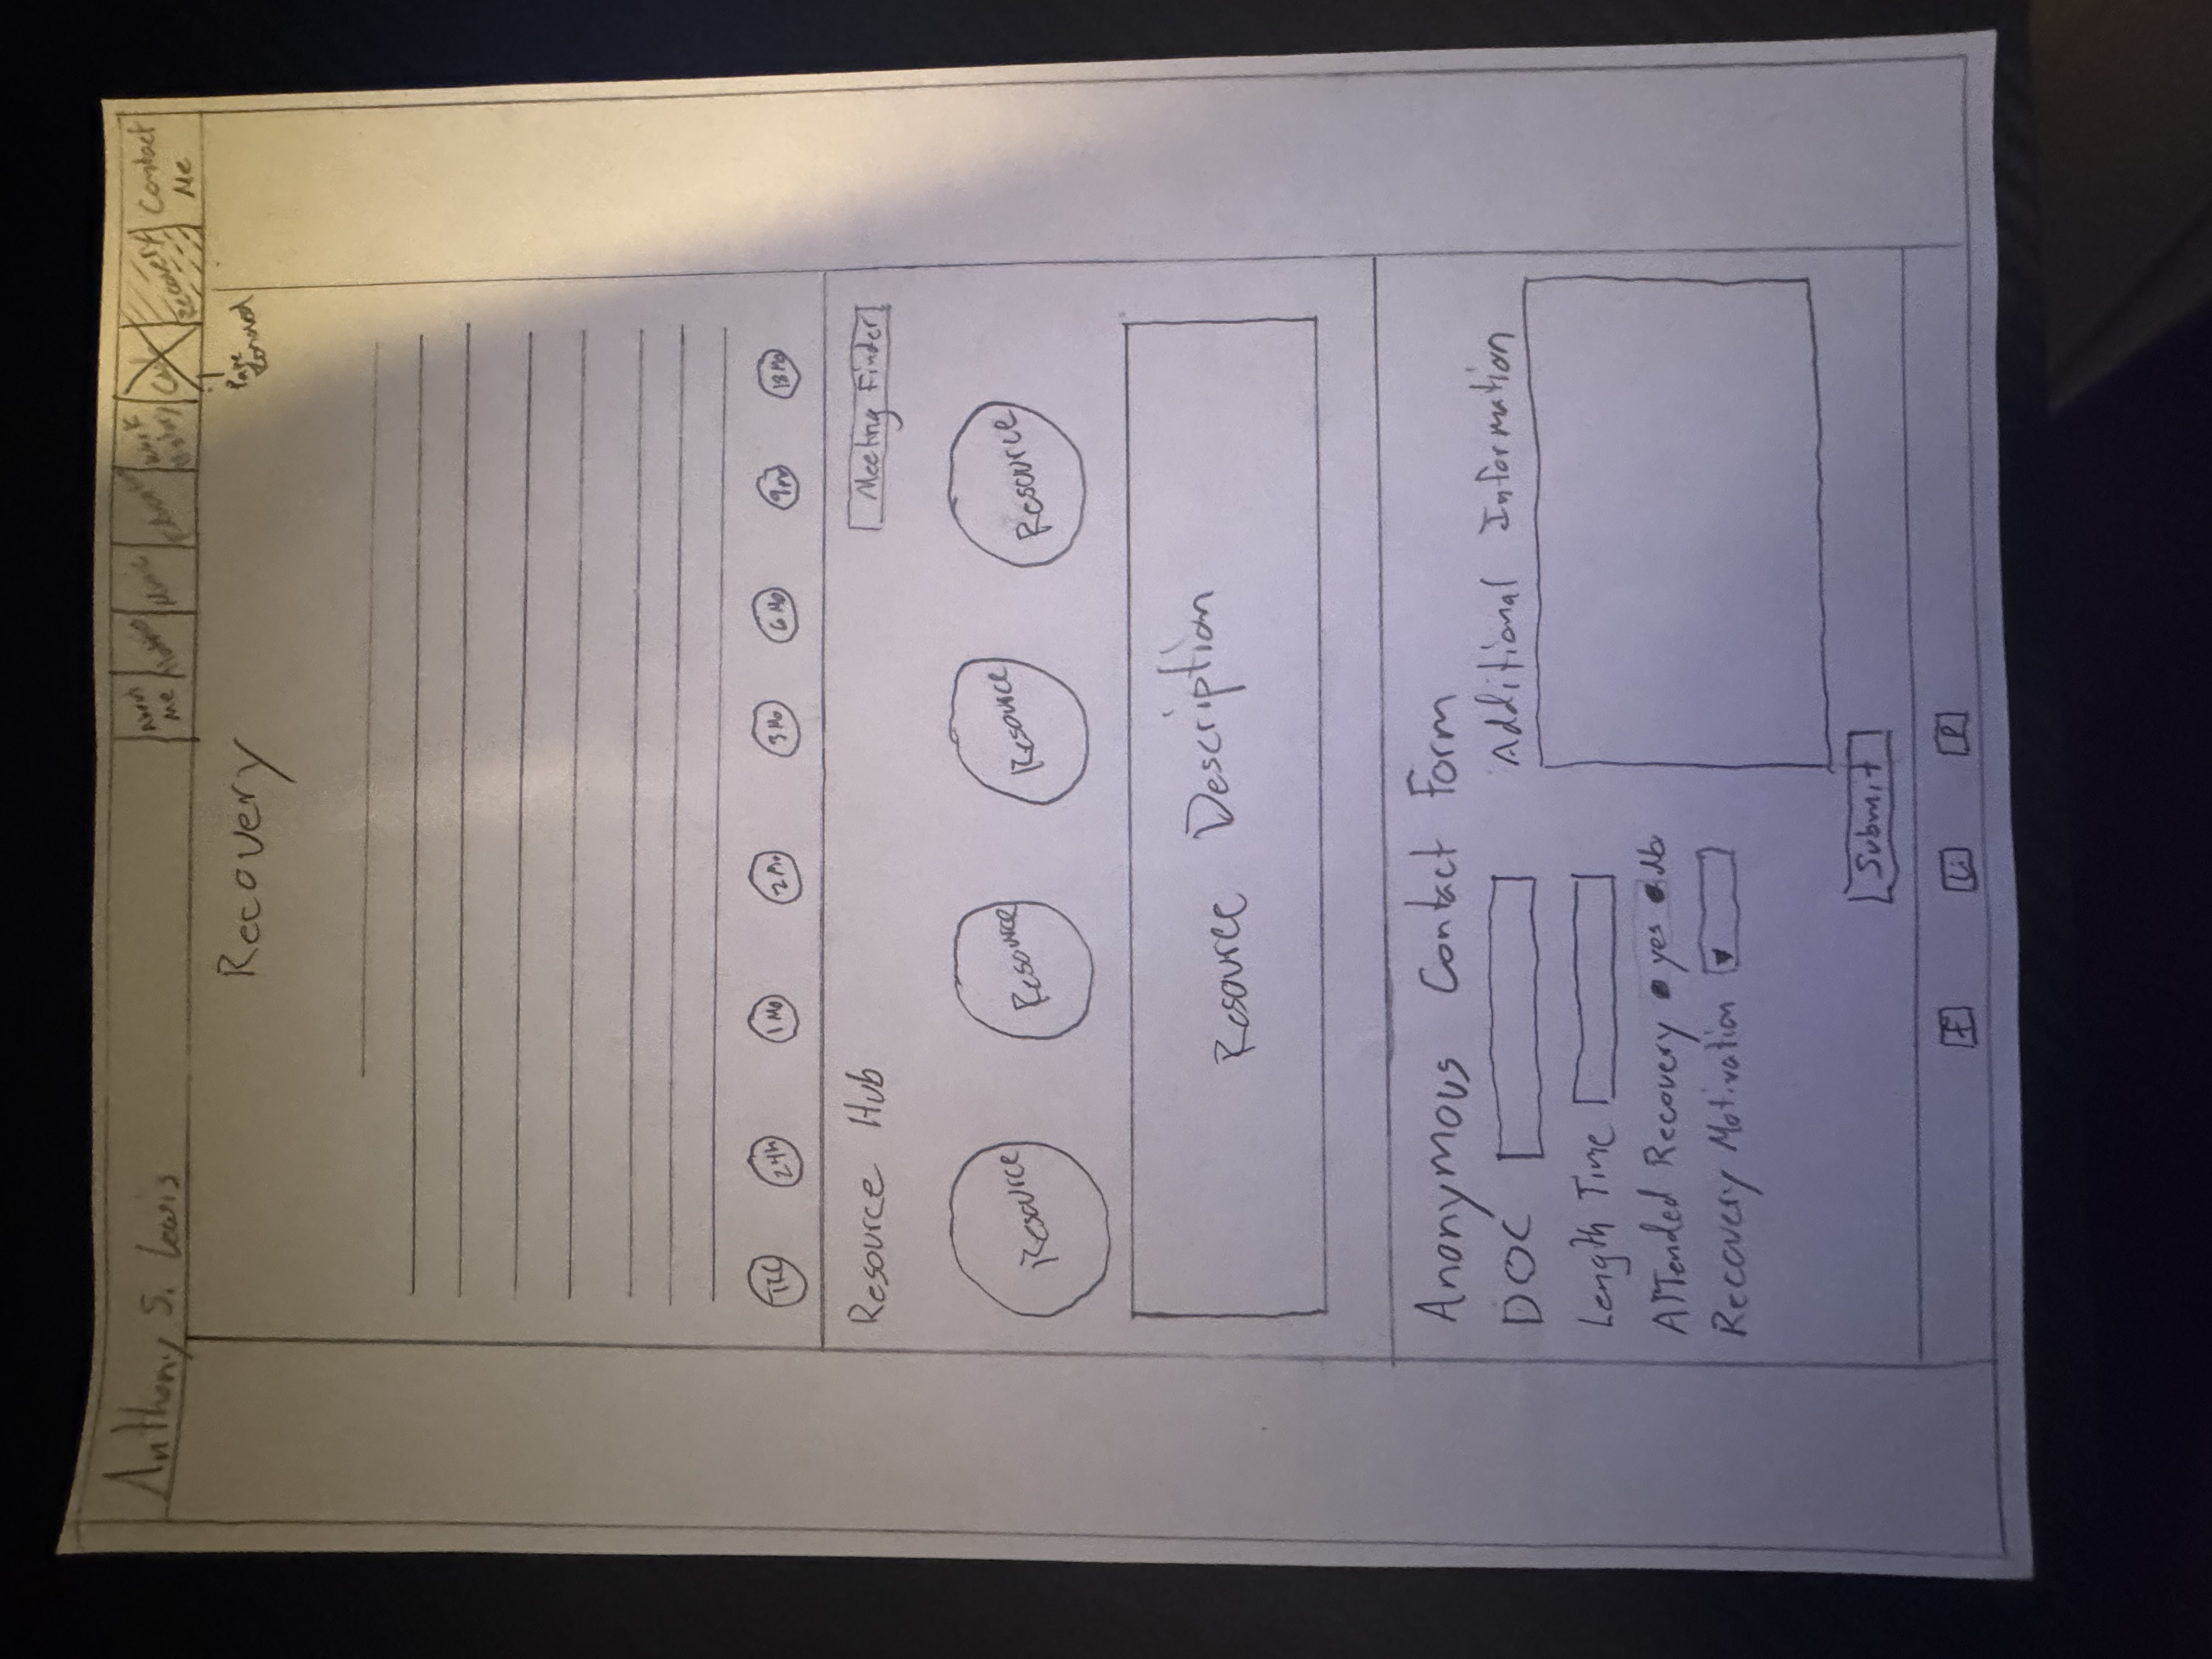 Anthony S. Lewis
About Me
Hobbies
Music
Education
Work History
Recovery
Contact Me
Page Removed
Recovery
24h 1 Mo 2 Mo 3 Mo 6 Mo 9 Mo 18 Mo
Resource Hub Meeting Finder
Resource Resource Resource Resource
Resource Description
Anonymous Contact Form
DOC Additional Information
Length Time
Attended Recovery yes No
Recovery Motivation
Submit
f Li P